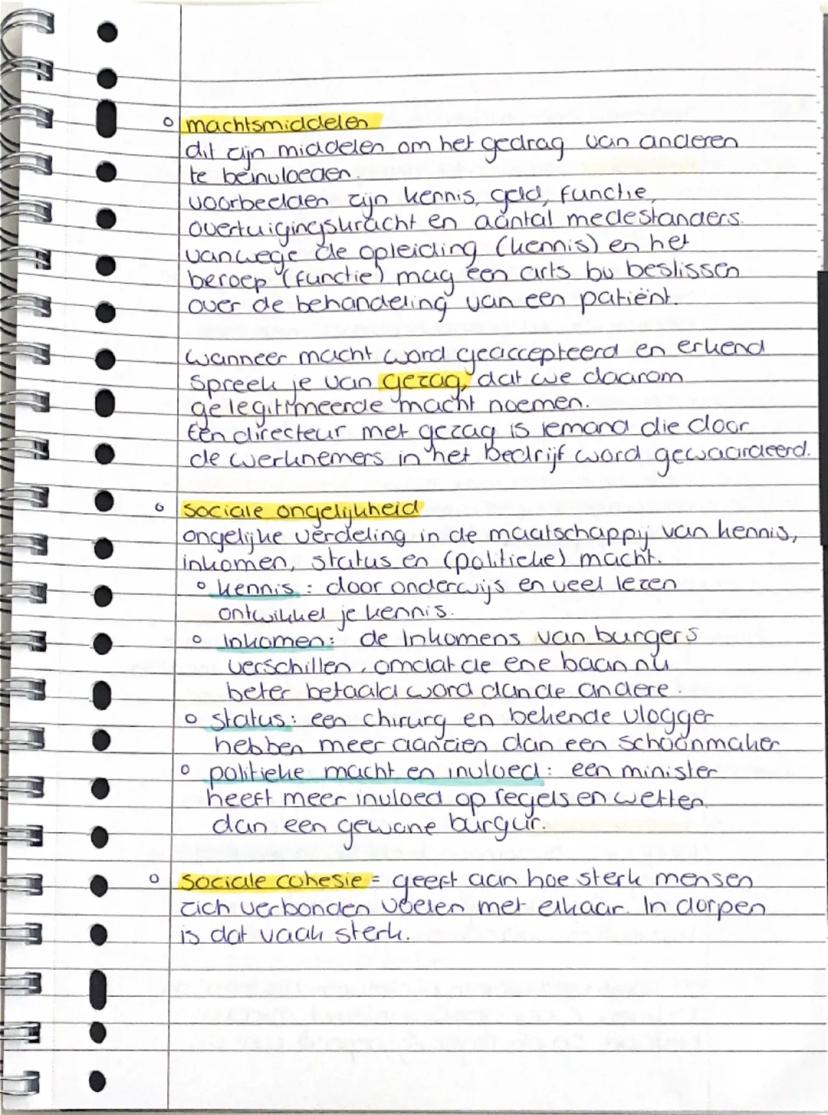 machtsmiddelen
dit zijn middelen om het gedrag van anderen
te beïnvloeden.
voorbeelden zijn kennis, geld, functie,
overtuigingskracht en aantal medestanders.
vanwege de opleiding (kennis) en het
beroep (functie) mag een arts bv beslissen
over de behandeling van een patiënt.
wanneer macht word geaccepteerd en erkend
spreek je van gezag, dat we daarom
gelegitimeerde macht noemen.
Een directeur met gezag is iemand die door
de werknemers in het bedrijf word gewaardeerd.
sociale ongelijkheid
ongelijke verdeling in de maatschappij van kennis,
inkomen, status en (politieke) macht.
kennis: door onderwijs en veel lezen
ontwikkel je kennis.
Inkomen: de Inkomens van burgers
verschillen, omdat de ene baan nu
beter betaald word dan de andere.
status: een chirurg en bekende vlogger
hebben meer aanzien dan een schoonmaker
politieke macht en invloed: een minister
heeft meer invloed op regels en wetten
dan een gewone burgur.
sociale cohesie = geeft aan hoe sterk mensen
zich verbonden voelen met elkaar. In dorpen
is dat vaak sterk.